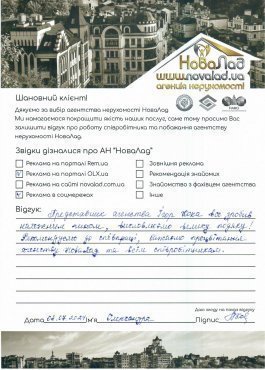 НоваЛад
www.novalad.ua
агенція нерухомості
Шановний клієнт!
Дякуємо за вибір агентства нерухомості НоваЛад
Ми намагаємося покращити якість наших послуг, саме тому просимо Вас
залишити відгук про роботу співробітника та побажання агентству
нерухомості НоваЛад.
Звідки дізналися про АН "НоваЛад"
Реклама на порталі Rem.ua
Зовнішня реклама
Реклама на порталі OLX.ua
Рекомендація знайомих
Реклама на сайті novalad.com.ua
Знайомство з фахівцем агентства
Реклама в соцмережах
Інше
Відгук: Представник агентства Ігор все зробив
належним чином, висловлюємо велику подяку!
Рекомендуємо до співпраці, бажаємо процвітання
агенству НоваЛад та всім співробітникам.
Дата
Ім'я Олександра
Підпис